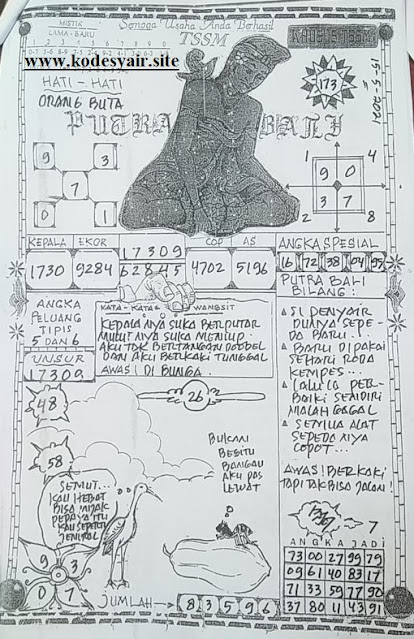 MISTIK
LAMA - BARU
Semoga Usaha Anda Berhasil
TSSM
KHUSUS TSSM
www.kodesyair.site
HATI - HATI
ORANG BUTA
173
15-5-2021
PUTRA BALI
9 3
7
0 1
1 4
9 0
3 7
2 8
KEPALA EKOR 17309 COP AS ANGKA SPESIAL
1730 9284 62845 4702 5196
16 72 38 04 95
PUTRA BALI
BILANG :
ANGKA
PELUANG
TIPIS
5 DAN 6
UNSUR
17309
KATA - KATA WANGSIT
KEPALA NYA SUKA BERPUTAR
MULUT NYA SUKA MENIUP
AKU TAK BERTANGAN DOBBEL
DAN AKU BERKAKI TUNGGAL
AWAS! DI BUNGA.
SI PENYAIR
PUNYA SEPE-
DA BARU...
BARU DIPAKAI
SEHARI RODA
KEMPES...
LALU LA PER-
BAIKI SENDIRI
MALAH GAGAL
SEMUA ALAT
SEPEDA NYA
COPOT...
AWAS! BERKAKI
TAPI TAK BISA JALAN!
48
26
58
BUKAN
BEGITU
BANGAU
AKU PAS
LEWAT
SEMUT...
KAU HEBAT
BISA
KAU SEPERTI
JENDRAL
9 3
0 7
7
ANGKA JADI
73 00 27 99 79
09 61 40 83 17
71 33 59 77 90
37 80 11 43 91
JUMLAH → 8 3 5 9 6